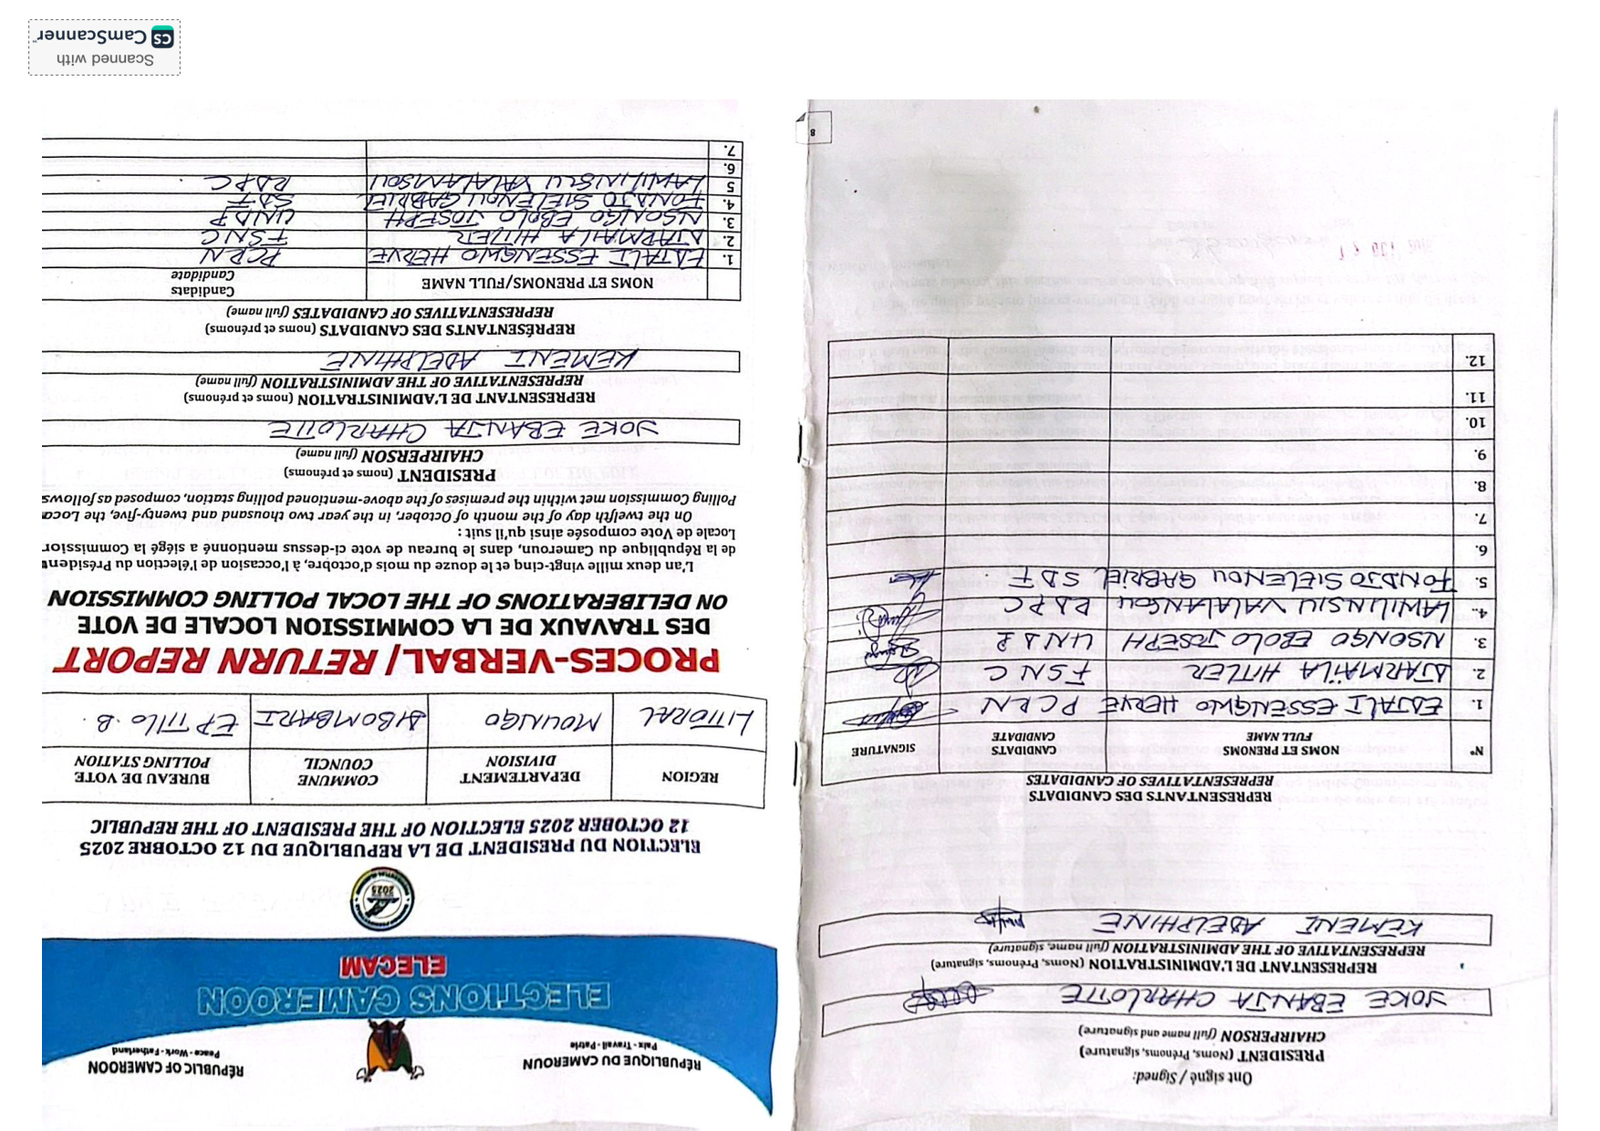 RÉPUBLIQUE DU CAMEROUN
Paix - Travail - Patrie
RÉPUBLIC OF CAMEROON
Peace - Work - Fatherland
ELECTIONS CAMEROON
ELECAM
2025
ELECTION DU PRESIDENT DE LA REPUBLIQUE DU 12 OCTOBRE 2025
12 OCTOBER 2025 ELECTION OF THE PRESIDENT OF THE REPUBLIC
REGION DEPARTEMENT DIVISION COMMUNE COUNCIL BUREAU DE VOTE POLLING STATION
LITTORAL MOUNGO DIBOMBARI EP TILLO. B
PROCES-VERBAL / RETURN REPORT
DES TRAVAUX DE LA COMMISSION LOCALE DE VOTE
ON DELIBERATIONS OF THE LOCAL POLLING COMMISSION
L'an deux mille vingt-cinq et le douze du mois d'octobre, à l'occasion de l'élection du Président
de la République du Cameroun, dans le bureau de vote ci-dessus mentionné a siégé la Commission
Locale de Vote composée ainsi qu'il suit :
On the twelfth day of the month of October, in the year two thousand and twenty-five, the Local
Polling Commission met within the premises of the above-mentioned polling station, composed as follows
PRESIDENT (noms et prénoms)
CHAIRPERSON (full name)
JOKE EBANJA CHARLOTTE
REPRESENTANT DE L'ADMINISTRATION (noms et prénoms)
REPRESENTATIVE OF THE ADMINISTRATION (full name)
KEMENI ADELPHINE
REPRÉSENTANTS DES CANDIDATS (noms et prénoms)
REPRESENTATIVES OF CANDIDATES (full name)
NOMS ET PRENOMS/FULL NAME Candidats Candidate
1. EDJALI ESSENGWO HERVE PCRN
2. DJARMAILA HITLER FSNC
3. NSONGO EBOLO JOSEPH UNDP
4. FONDJO SIELENOU GABRIEL SDF
5 LAWILINSIU VALALANSOU RDPC
6.
7.
Ont signé / Signed:
PRESIDENT (Noms, Prénoms, signature)
CHAIRPERSON (full name and signature)
JOKE EBANJA CHARLOTTE
REPRESENTANT DE L'ADMINISTRATION (Noms, Prénoms, signature)
REPRESENTATIVE OF THE ADMINISTRATION (full name, signature)
KEMENI ADELPHINE
REPRESENTANTS DES CANDIDATS
REPRESENTATIVES OF CANDIDATES
N° NOMS ET PRENOMS FULL NAME CANDIDATS CANDIDATE SIGNATURE
1. EDJALI ESSENGWO HERVE PCRN
2. DJARMAÏLA HITLER FSNC
3. NSONGO EBOLO JOSEPH UNDP
4. LAWILINSIU VALALANGOU RDPC
5. FONDJO SIELENOU GABRIEL SDF
6.
7.
8.
9.
10.
11.
12.
8
Scanned with
CS CamScanner